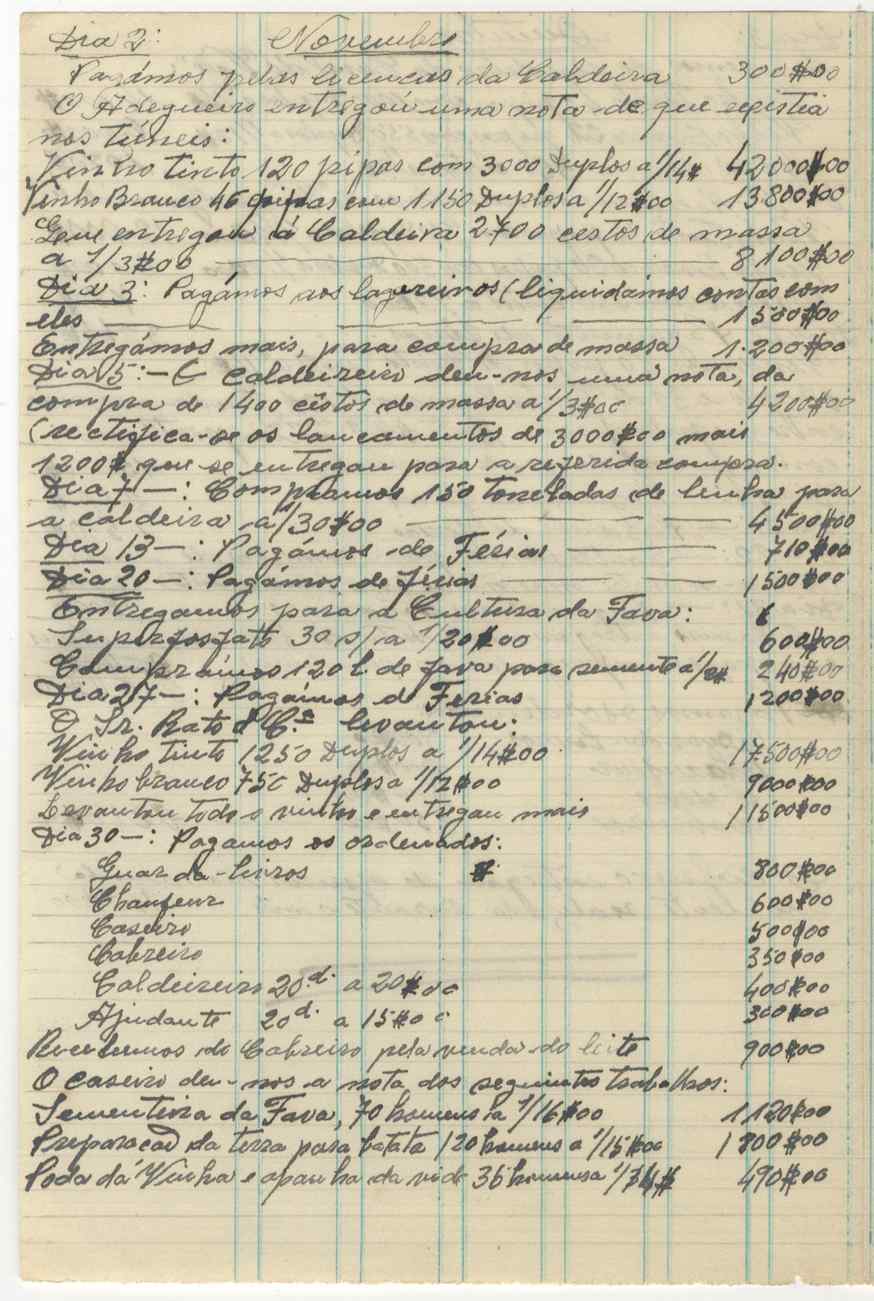 Dia 2: Novembro
Pagámos pelas licenças da Caldeira 300$00
O Adegueiro entregou uma nota de que existia
nos túneis:
Vinho tinto 120 pipas com 3000 Duplos a 1/14$ 42000$00
Vinho Branco 46 pipas com 1150 Duplos a 1/12$00 13800$00
Que entregou á Caldeira 2700 cestos de massa
a 1/3$00 8100$00
Dia 3: Pagámos aos lagareiros (liquidámos contas com
eles 1500$00
Entregámos mais, para compra de massa 1.200$00
Dia 5:- O Caldeireiro deu-nos uma nota, da
compra de 1400 cêstos de massa a 1/3$00 4200$00
(rectifica-se os lançamentos de 3000$00 mais
1200$ que se entregou para a referida compra.
Dia 7-: Comprámos 150 toneladas de lenha para
a caldeira a 1/30$00 4500$00
Dia 13-: Pagámos de Férias 710$00
Dia 20-: Pagámos de férias 1500$00
Entregamos para a Cultura da Fava:
Superfosfato 30 s/ a 1/20$00 600$00
Comprámos 120 l. de fava para semente á 1/2$ 240$00
Dia 27-: Pagámos de Ferias 1200$00
O Sr. Rato & C.ª levantou:
Vinho tinto 1250 Duplos a 1/14$00 17500$00
Vinho branco 750 Duplos a 1/12$00 9000$00
Levantou todo o vinho e entregou mais 11500$00
Dia 30-: Pagamos os ordenados:
Guarda-livros $ 800$00
Chaufeur 600$00
Caseiro 500$00
Cabreiro 350$00
Caldeireiro 20 d. a 20$00 400$00
Ajudante 20 d. a 15$00 300$00
Recebemos do Cabreiro pela venda do leite 900$00
O caseiro deu-nos a nota dos seguintes trabalhos:
Sementeira da Fava, 70 homens a 1/16$00 1120$00
Preparação da terra para batata 120 homens a 1/15$00 1800$00
Poda da Vinha e apanha da vide 35 homens a 1/14$ 490$00